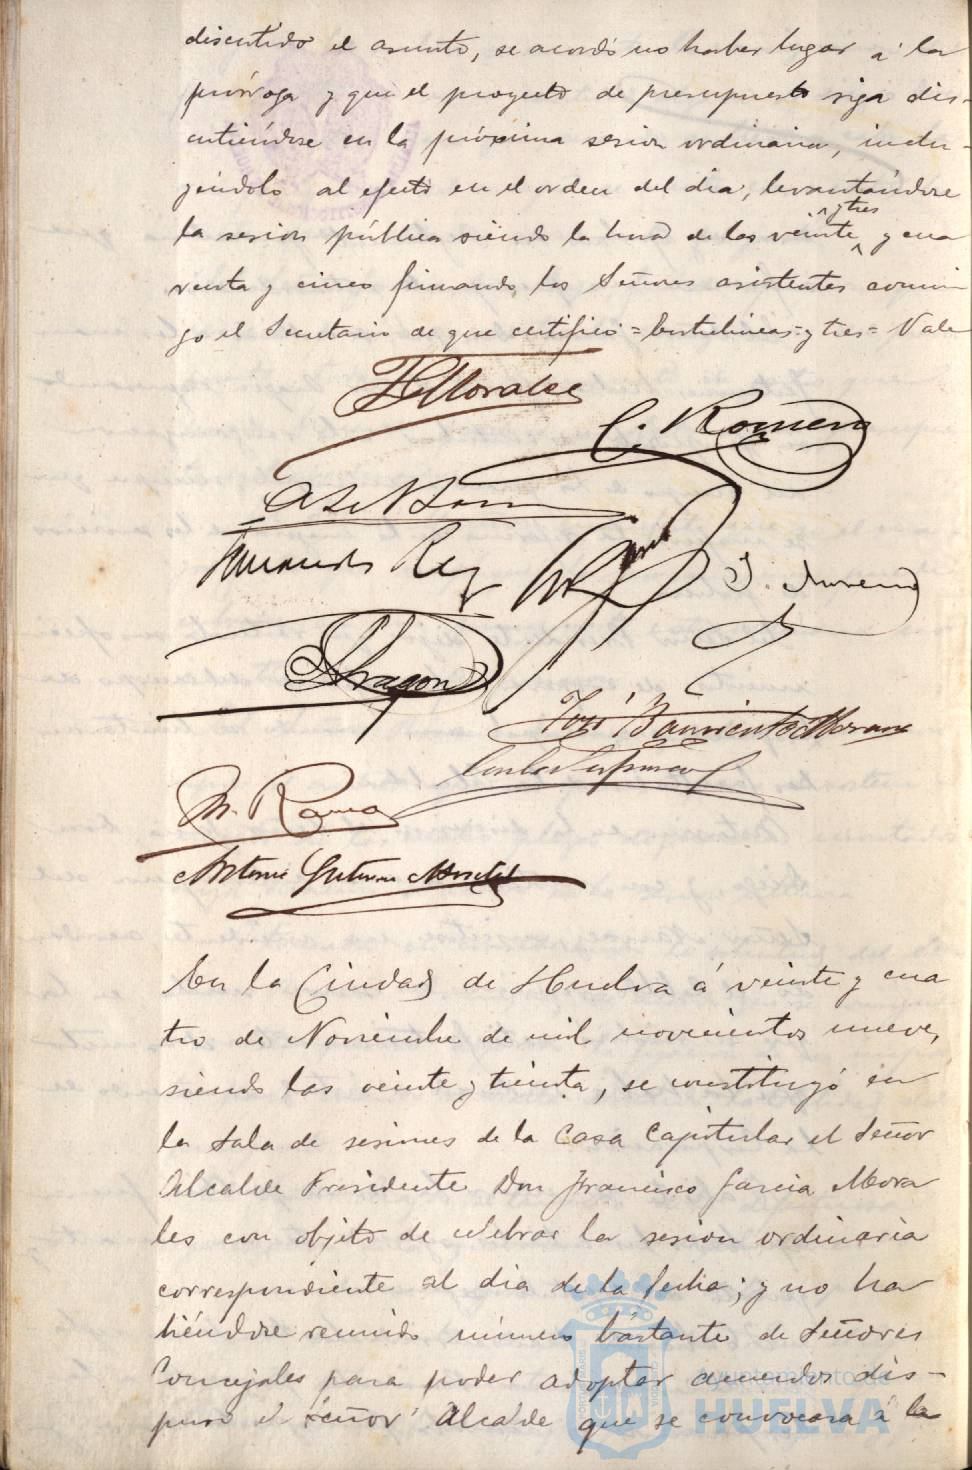 discutido el asunto, se acordó no haber lugar á la
prórroga y que el proyecto de presupuesto siga dis-
cutiéndose en la próxima sesion ordinaria, inclu-
yéndolo al efecto en el orden del dia, levantándose
y tres
la sesión pública siendo la hora de las veinte y cua
renta y cinco firmando los Señores asistentes conmi
go el Secretario de que certifico = Entrelineas = y tres = Vale
C. Romero
Fernando Rey
J. Moreno
Aragon
José Barrientos Moreno
M. Rama
Antonio Gutierrez
En la Ciudad de Huelva á veinte y cua
tro de Noviembre de mil novecientos nueve,
siendo las veinte y treinta, se constituyó en
la Sala de sesiones de la Casa Capitular el Señor
Alcalde Presidente Don Francisco Garcia Mora
les con objeto de celebrar la sesion ordinaria
correspondiente al dia de la fecha; y no ha
biéndose reunido número bastante de Señores
Concejales para poder adoptar acuerdos dis-
puso el Señor Alcalde que se convocara á la
Ayuntamiento de
HUELVA